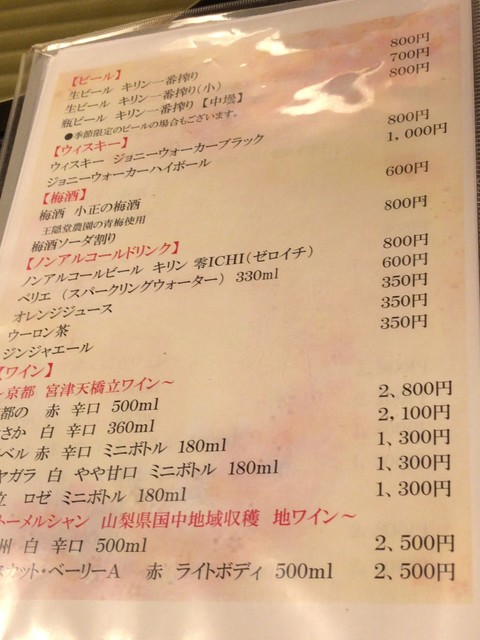 【ビール】
生ビール キリン一番搾り 800円
生ビール キリン一番搾り(小) 700円
瓶ビール キリン一番搾り【中壜】 800円
●季節限定のビールの場合もございます。
【ウィスキー】
ウィスキー ジョニーウォーカーブラック 800円
ジョニーウォーカーハイボール 1,000円
【梅酒】
梅酒 小正の梅酒 600円
王隠堂農園の青梅使用
梅酒ソーダ割り 800円
【ノンアルコールドリンク】
ノンアルコールビール キリン 零ICHI(ゼロイチ) 800円
ペリエ (スパークリングウォーター) 330ml 600円
オレンジジュース 350円
ウーロン茶 350円
ジンジャエール 350円
【ワイン】
～京都 宮津天橋立ワイン～
都の 赤 辛口 500ml 2,800円
さか 白 辛口 360ml 2,100円
ベル 赤 辛口 ミニボトル 180ml 1,300円
ヤガラ 白 やや甘口 ミニボトル 180ml 1,300円
立 ロゼ ミニボトル 180ml 1,300円
トーメルシャン 山梨県国中地域収穫 地ワイン～
州 白 辛口 500ml 2,500円
スカット・ベーリーA 赤 ライトボディ 500ml 2,500円